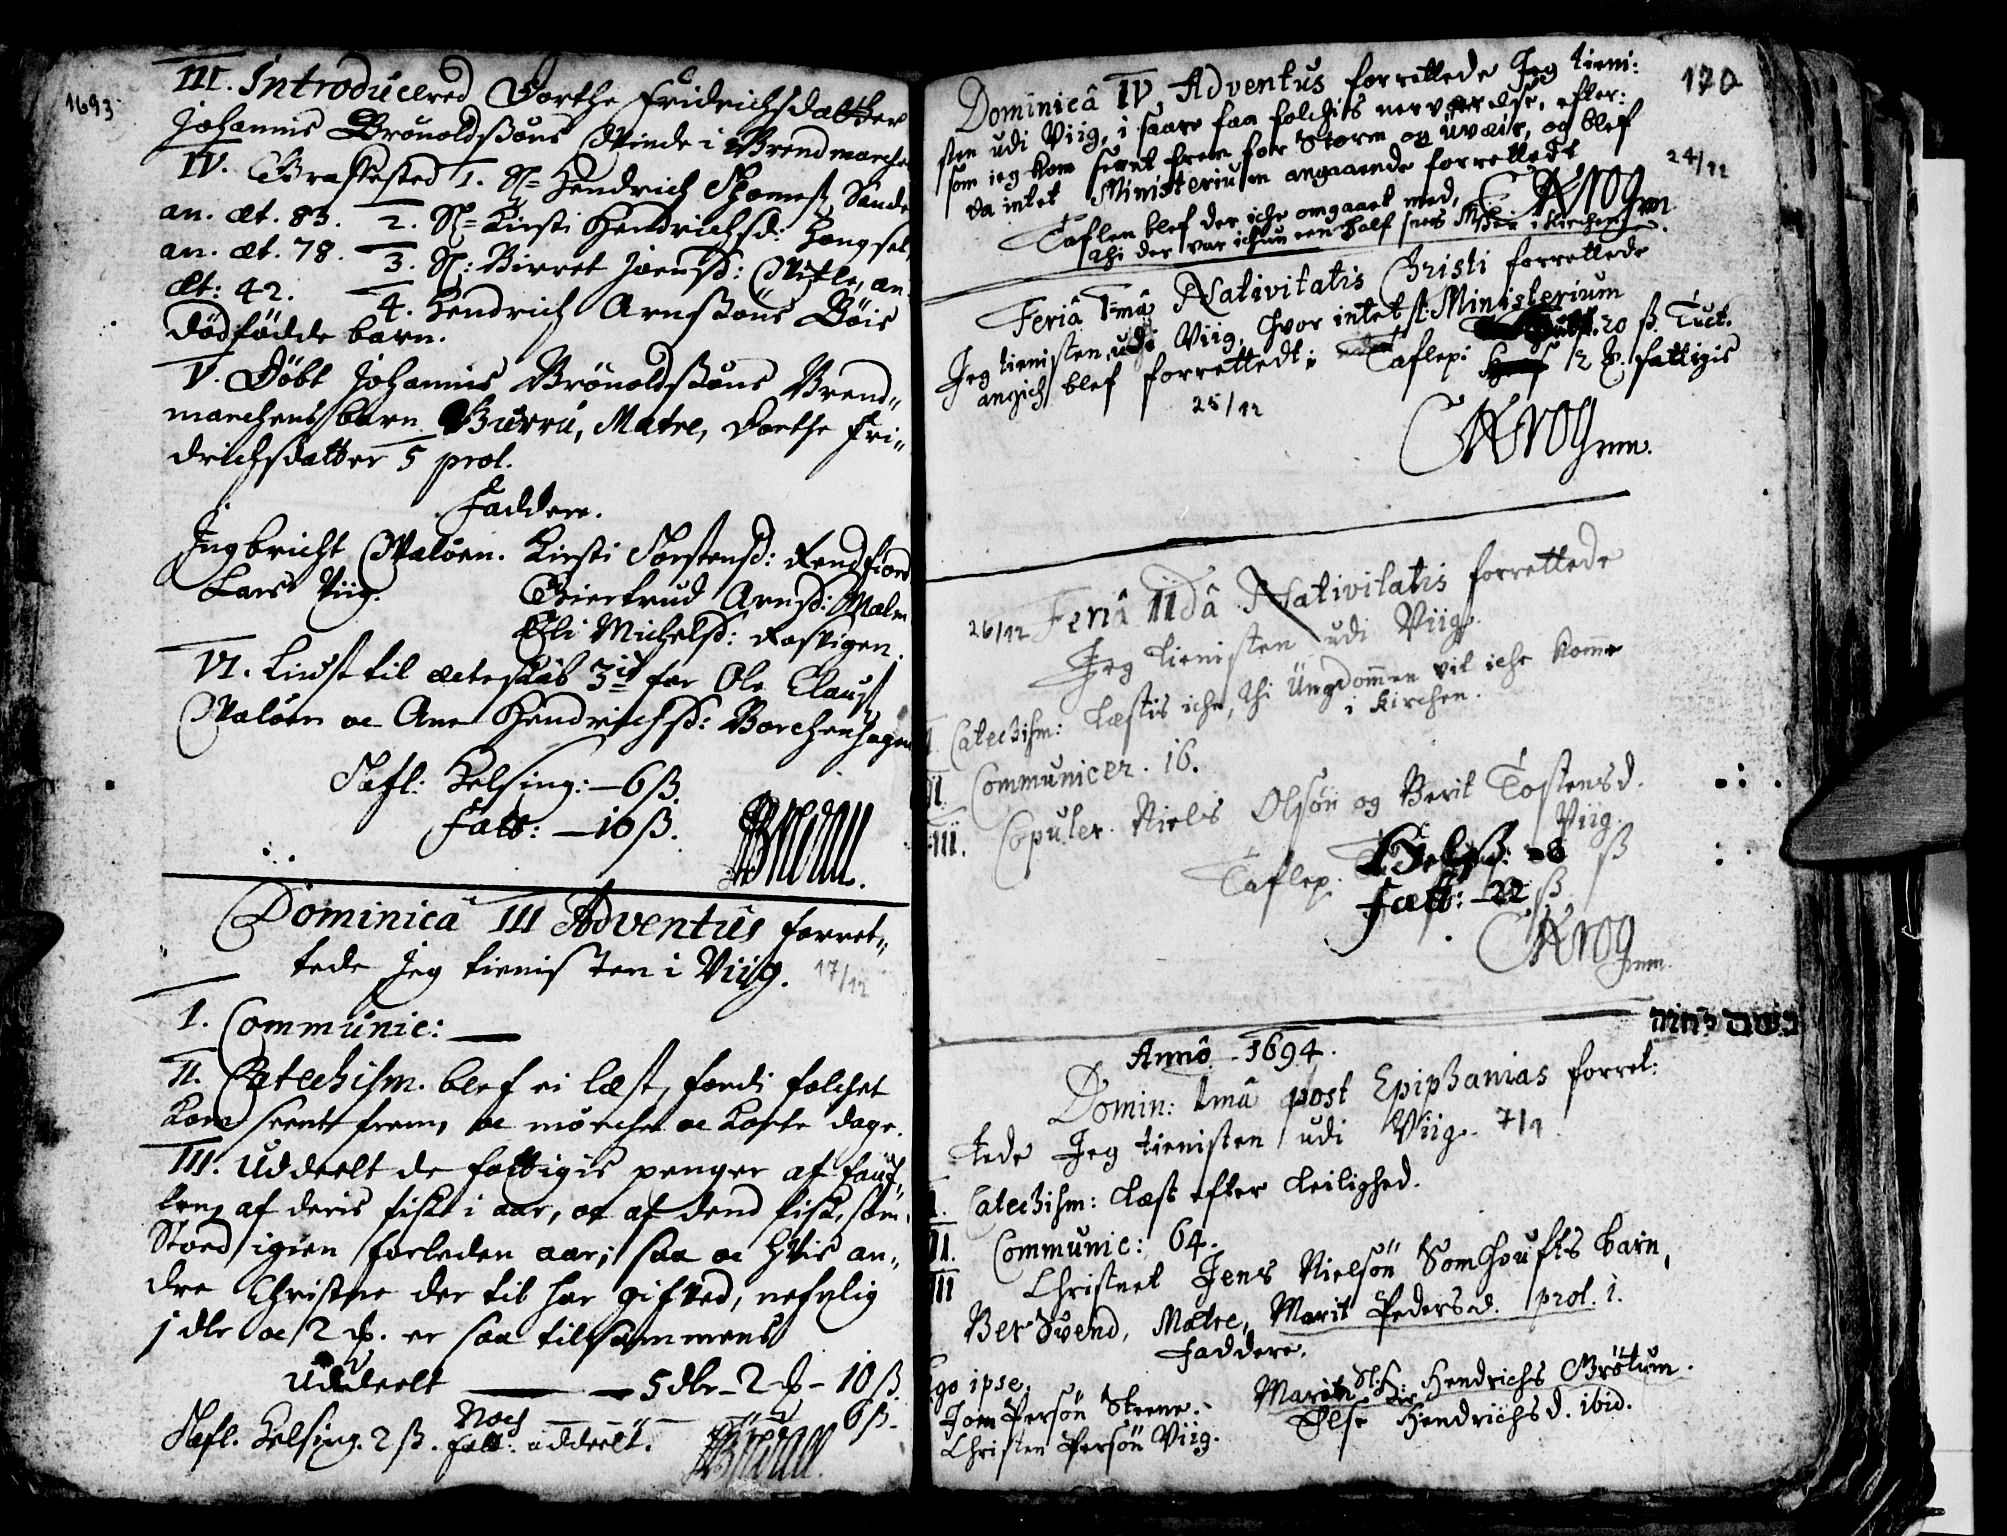 1693.
III. Introducered Dorthe Fridrichsdatter
Johannis Brönoldsöns Qvinde i Brendmarche
IV. Graffested 1. Sl= Hendrich Thomesß Sande
an. æt. 83. 2. Sl= Kirsti Hendrichsd: Hongset,
an. æt. 78. 3. Sl: Birret Joensd: Qvitle, an.
æt: 42. 4. Hendrich Arnsöns Böis
dödfödde barn.
V. Döbt Johannis Brönoldsöns Brend„
marchens barn Gurru, Matre, Dorthe Fri„
drichsdatter 5 prol.
Faddere.
Ingbricht Qvalöen. Kirsti Torstensd: Rendfiord
Lars Viig. Giertrud Arnsd: Malm
Eli Michelsd: Rosvigen.
VI. Liust til ecteskab 3is for Ole Clausß
Qvalöen oc Ane Hendrichsd: Borchenhagen
Tafl: Helsing: – 6 ß.
Fatt: – 16 ß.
Dominica III Adventus forret„
tede Jeg tienisten i Viig. 17/12
I. Communic: —
II. Catechism. blef ei læst, fordi folchet
kom seent frem, oc mörche oc korte dage.
III. Uddeelt de fattigis penger af
af deris fisk i aar, oc af dend fisk, som
Stoed igien forleden aar; saa oc hvis an„
dre Christne der til har gifved, nefnlig
1 dlr oc 2 . er saa tilsammens
Uddeelt — 5 dlr – 2 – 10 ß.
Tafl. Helsing. 2 ß. Noch fatt: uddeelt. 6 ß.
170
Dominicâ IV Adventus forrettede Jeg tieni:
sten udi Viig, i saare faa folchis nerværelse, efter:
som ieg kom seent frem for Storm og uvæir, og blef
da intet Ministerium angaaende forrettedt 24/12
Taflen blef der iche omgaaet med,
thi der var ichun een half snes Mskr i kirchen.
CKrog mm
Feriâ Imâ Nativitatis Christi forrettede
Jeg tienisten udi Viig, hvor intet Ministerium
angich blef forrettedt: Taflep: 20 ß. Tuct.
12 ß. fattigis
25/12
CKrog mm.
26/12 Feriâ IIdâ Nativitatis forrettede
Jeg tienisten udi Viig.
I. Catechism: læstis iche, thi Ungdommen vil iche komme
i kirchen.
II. Communicer. 16.
III. Copuler. Niels Olsön og Berit Tostensd.
Viig.
Taflep: Helß: – 6 ß
Fatt: – 22 ß.
CKrog mm.
Annô 1694.
Domin: Imâ post Epiphanias forret:
tede Jeg tienisten udi Viig. 7/1
I. Catechism: læst efter leilighed.
II. Communic: 64.
III Christnet Jens Nielsön Somhoufts barn,
Ber Svend, Matre, Marit Pedersd. prol. 1.
Faddere.
Ego ipse. Marit Sl: Hendrichs Grötum.
Jon Persön Steene. Else Hendrichsd. ibid.
Christen Persön Viig.